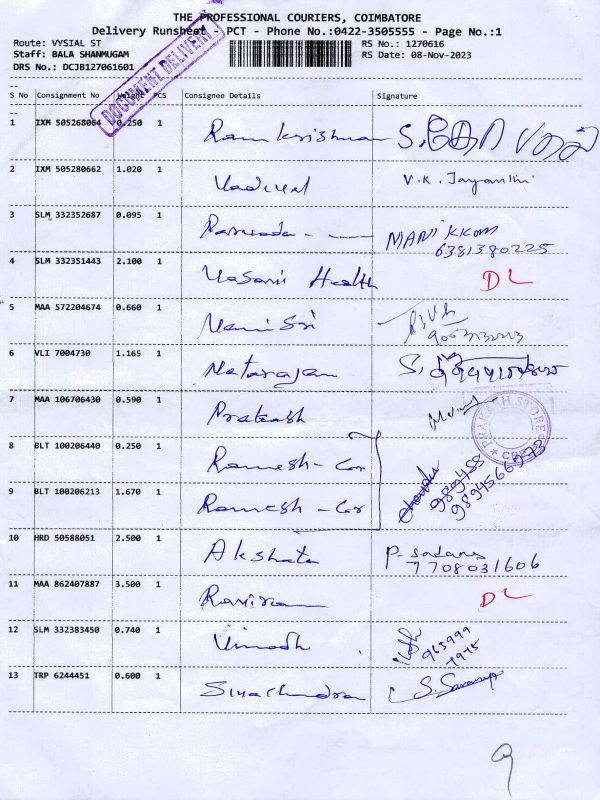 THE PROFESSIONAL COURIERS, COIMBATORE
Delivery Runsheet - PCT - Phone No.:0422-3505555 - Page No.:1
Route: VYSIAL ST RS No.: 1270616
Staff: BALA SHANMUGAM RS Date: 08-Nov-2023
DRS No.: DCJB127061601
DOCUMENT DELIVERY
S No Consignment No Weight PCS Consignee Details Signature
1 IXM 505268064 0.250 1 Ramkrishnan
2 IXM 505280662 1.020 1 Vadivel V.K.
3 SLM 332352687 0.095 1 MANIKKAM
6381380225
4 SLM 332351443 2.100 1 Health DL
5 MAA 572204674 0.660 1 Vani Sri
6 VLI 7004730 1.165 1 Natarajan
7 MAA 106706430 0.590 1 Prakash
PRAKASH STORES
8 BLT 100206440 0.250 1 Ramesh - Car
9 BLT 100206213 1.670 1 Ramesh - Car
9894566973
10 HRD 50588051 2.500 1 Akshata P. Sadana
7708031606
11 MAA 862407887 3.500 1 DL
12 SLM 332383450 0.740 1 Vinodh
965999
7975
13 TRP 6244451 0.600 1 Sivachandran